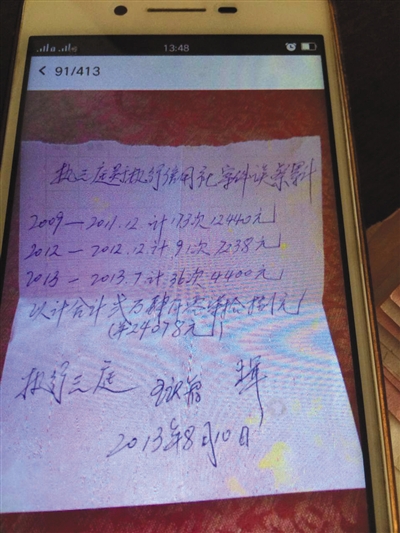 13:48
91/413
执三庭对执行信用社案件误餐累计
2009—2011.12.计173次12440元
2012—2012.12计91次7238元
2013—2013.7计36次4400元
以计合计贰万肆仟零柒拾捌元
(¥24078元)
执行三庭
2013年8月10日